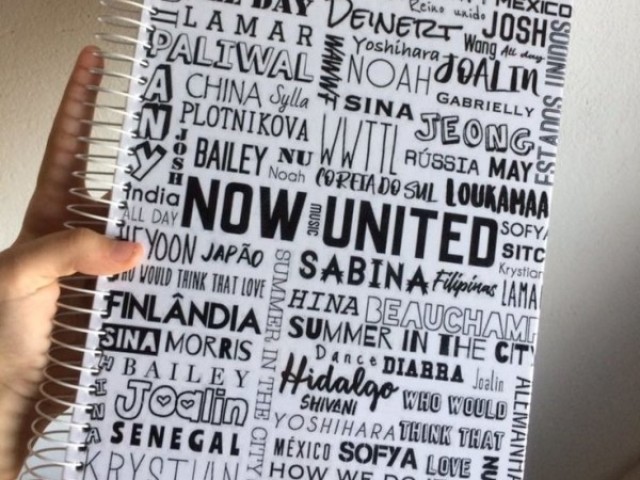 ALL DAY
MÉXICO
Reino unido
LAMAR
DEINERT
JOSH
PALIWAL
Yoshihara
Wang
All day
ANY
CHINA
Sylla
NOAH
JOALIN
SINA
GABRIELLY
PLOTNIKOVA
WWTTL
JEONG
JOSH
BAILEY
NU
Noah
RÚSSIA
MAY
COREIA DO SUL
LOUKAMAA
India
ALL DAY
NOW
MUSIC
UNITED
SOFYA
SITC
HEYOON
JAPÃO
SABINA
Filipinas
Krystian
LAMA
WHO WOULD THINK THAT LOVE
HINA
BEAUCHAMP
FINLÂNDIA
SUMMER IN THE CITY
SUMMER IN THE CITY
SINA
MORRIS
Dance
DIARRA
Joalin
HINA
BAILEY
Hidalgo
SHIVANI
WHO WOULD
ALEMANHA
Joalin
YOSHIHARA
THINK THAT
SENEGAL
MÉXICO
SOFYA
LOVE
NU
KRYSTIAN
HOW WE DO IT